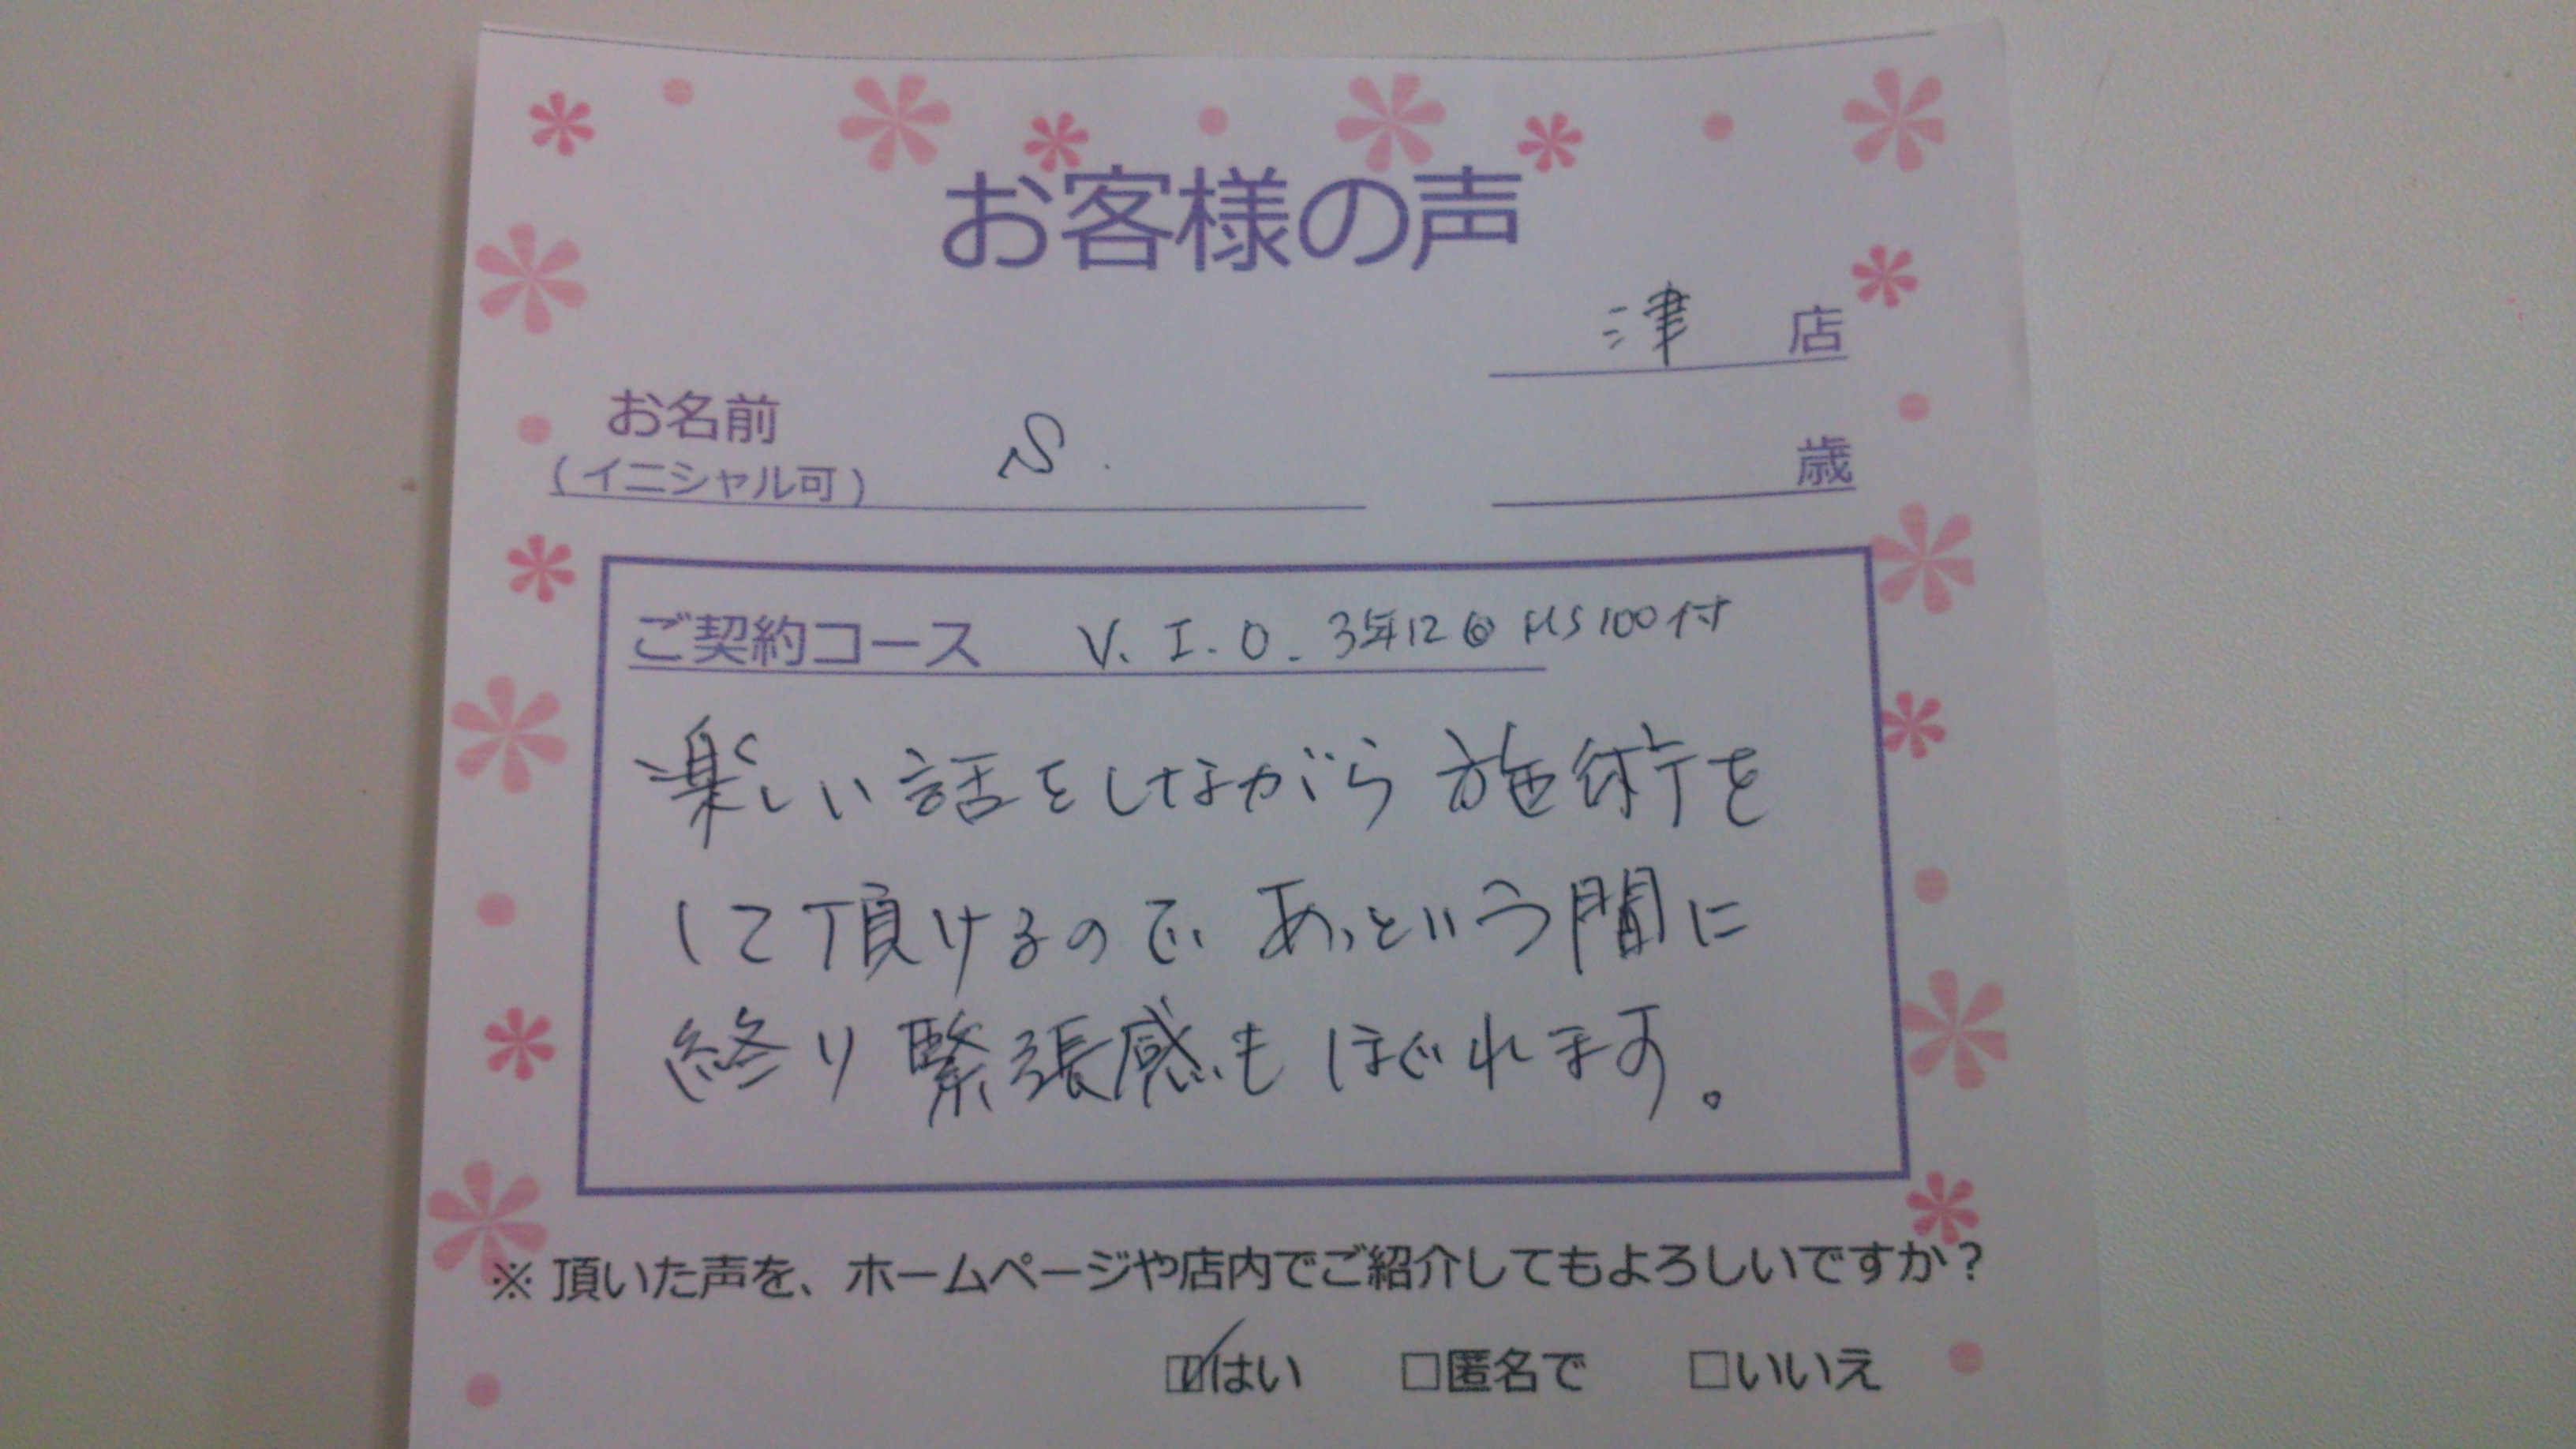 お客様の声
津 店
お名前
(イニシャル可) S.
歳
ご契約コース V.I.O. 3年12回 HS100付
楽しい話をしながら施術を
して頂けるので、あっという間に
終り緊張感もほぐれます。
※頂いた声を、ホームページや店内でご紹介してもよろしいですか?
☑はい □匿名で □いいえ